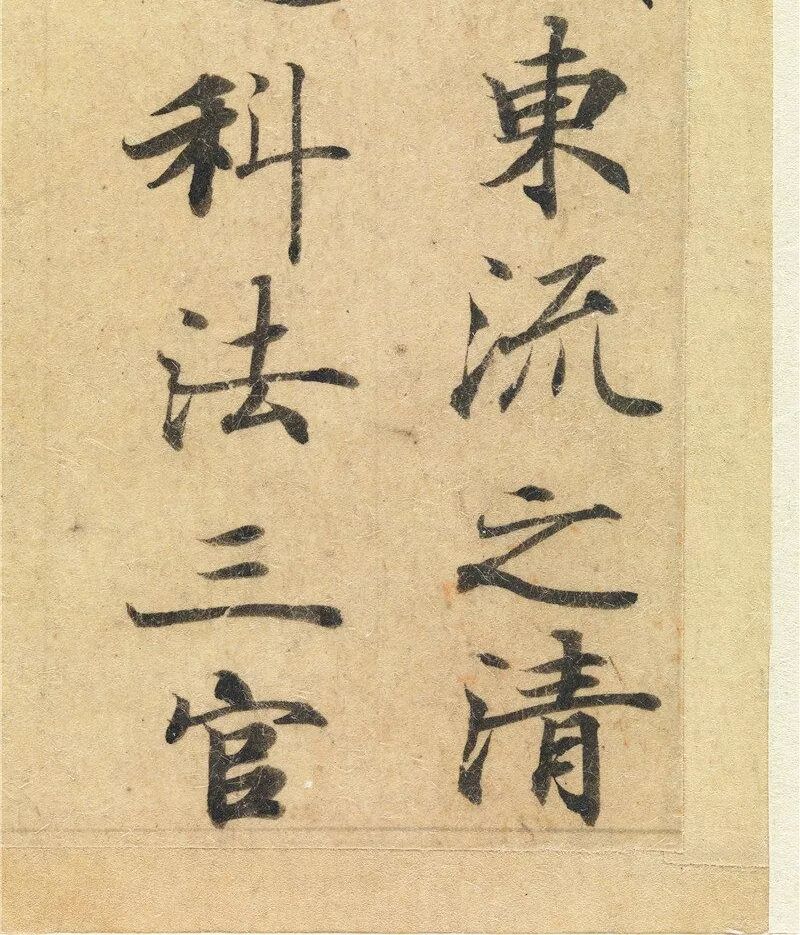 東流之清
科法三官